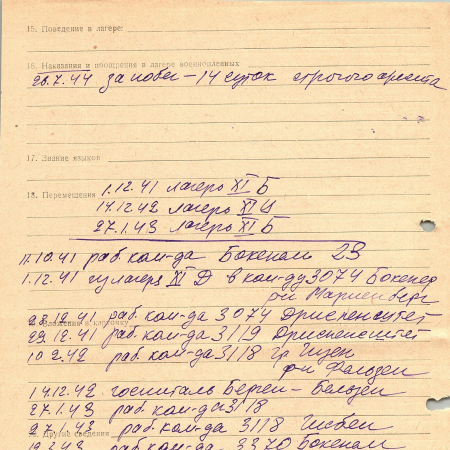 15. Поведение в лагере:
16. Наказания и поощрение в лагере военнопленных
28.7.44 за побег – 14 суток строгого ареста
17. Знание языков
18. Перемещения 1.12.41 лагерь XI Б
14.12.42 лагерь XI Ц
27.1.43 лагерь XI Б
11.10.41 раб. ком-да Бокенем 23
1.12.41 лагеря XI Д в ком-ду 3074 Бокенер
р-н Мариенберг
28.12.41 раб. ком-да 3074
29.12.41 раб. ком-да 3119
10.2.42 раб. ком-да 3118
р-н
14.12.42 госпиталь Берген-Бельзен
27.1.43 раб. ком-да 3118
Другие сведения
27.1.43 раб. ком-да 3118 Гисбен
раб. ком-да 3370 Бокенем